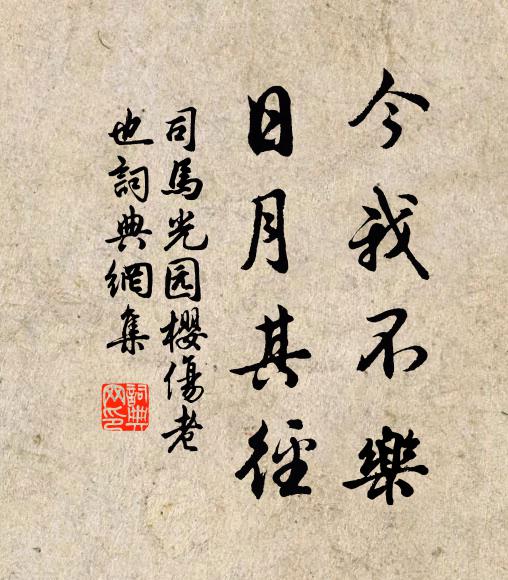 今我不樂
日月其徑
司馬光园櫻傷老
也詞典網集
詞典网印